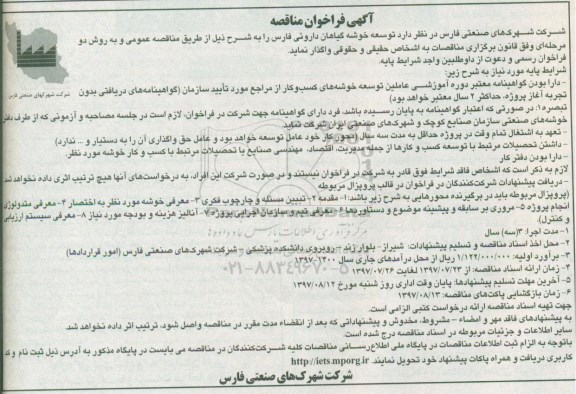 آگهی فراخوان مناقصه
شرکت شهرکهای صنعتی فارس
شرکت شهرک‌های صنعتی فارس در نظر دارد توسعه خوشه گیاهان دارویی فارس را به شرح ذیل از طریق مناقصه عمومی و به روش دو
مرحله‌ای وفق قانون برگزاری مناقصات به اشخاص حقیقی و حقوقی واگذار نماید.
فراخوان رسمی و دعوت از داوطلبین واجد شرایط پایه.
شرایط پایه مورد نیاز به شرح زیر:
- دارا بودن گواهینامه معتبر دوره آموزشی عاملین توسعه خوشه‌های کسب‌وکار از مراجع مورد تأیید سازمان (گواهینامه‌های دریافتی بدون
تجربه آغاز پروژه، حداکثر ۲ سال معتبر خواهد بود)
تبصره۱: در صورتی که اعتبار گواهینامه به پایان رسیده باشد، فرد دارای گواهینامه جهت شرکت در فراخوان، لازم است در جلسه مصاحبه و آزمونی که از طرف دفتر
خوشه‌های صنعتی سازمان صنایع کوچک و شهرک‌های صنعتی ایران شرکت نماید.
- تعهد به اشتغال تمام وقت در پروژه حداقل به مدت سه سال (مجوز کار خود عامل توسعه خواهد بود و عامل حق واگذاری آن را به دستیار و ... ندارد)
- داشتن تحصیلات مرتبط با توسعه کسب و کارها از جمله مدیریت، اقتصاد، مهندسی صنایع یا تحصیلات مرتبط با کسب و کار خوشه مورد نظر.
- دارا بودن دفتر کار
لازم به ذکر است که اشخاص فاقد شرایط فوق قادر به شرکت در فراخوان نیستند و در صورت شرکت این افراد، به درخواست‌های آنها هیچ ترتیب اثری داده نخواهد شد.
- دریافت پیشنهادات شرکت‌کنندگان در فراخوان در قالب پروپزال مربوطه
(پروپزال مربوطه باید در برگیرنده محورهایی به شرح زیر باشد: ۱- مقدمه ۲- تبیین مسئله و چارچوب فکری ۳- معرفی خوشه مورد نظر به اختصار ۴- معرفی متدولوژی
انجام پروژه ۵- مروری بر سابقه و پیشینه موضوع و دستاوردها ۶- معرفی تیم و سازمان اجرایی پروژه ۷- آنالیز هزینه و بودجه مورد نیاز ۸- معرفی سیستم ارزیابی
و کنترل).
۱- مدت اجرا: ۳(سه) سال
۲- محل اخذ اسناد مناقصه و تسلیم پیشنهادات: شیراز- بلوار زند - روبروی دانشکده پزشکی - شرکت شهرک‌های صنعتی فارس (امور قراردادها)
۳- برآورد اولیه: ۱/۱۲۲/۰۰۰/۰۰۰ ریال از محل درآمدهای جاری سال ۱۴۰۰-۱۳۹۷
۴- زمان ارائه اسناد مناقصه: از ۱۳۹۷/۰۷/۲۳ لغایت ۱۳۹۷/۰۷/۲۶
۵- آخرین مهلت تسلیم پیشنهادها: پایان وقت اداری روز شنبه مورخ ۱۳۹۷/۰۸/۱۲
۶- زمان بازگشایی پاکت‌های مناقصه: ۱۳۹۷/۰۸/۱۳
جهت تهیه اسناد مناقصه ارائه درخواست کتبی الزامی است.
به پیشنهادهای فاقد مهر و امضاء - مشروط، مخدوش و پیشنهاداتی که بعد از انقضاء مدت مقرر در مناقصه واصل شود، ترتیب اثر داده نخواهد شد.
سایر اطلاعات و جزئیات مربوطه در اسناد مناقصه درج شده است.
باتوجه به الزام ثبت اطلاعات مناقصات در پایگاه ملی اطلاع‌رسانی مناقصات کلیه شرکت‌کنندگان در مناقصه می بایست در پایگاه مذکور به آدرس ذیل ثبت نام و کد
کاربری دریافت و همراه پاکات پیشنهاد خود تحویل نمایند. http://iets.mporg.ir
شرکت شهرک‌های صنعتی فارس
۰۲۱-۸۸۳۴۹۶۷۰-۵